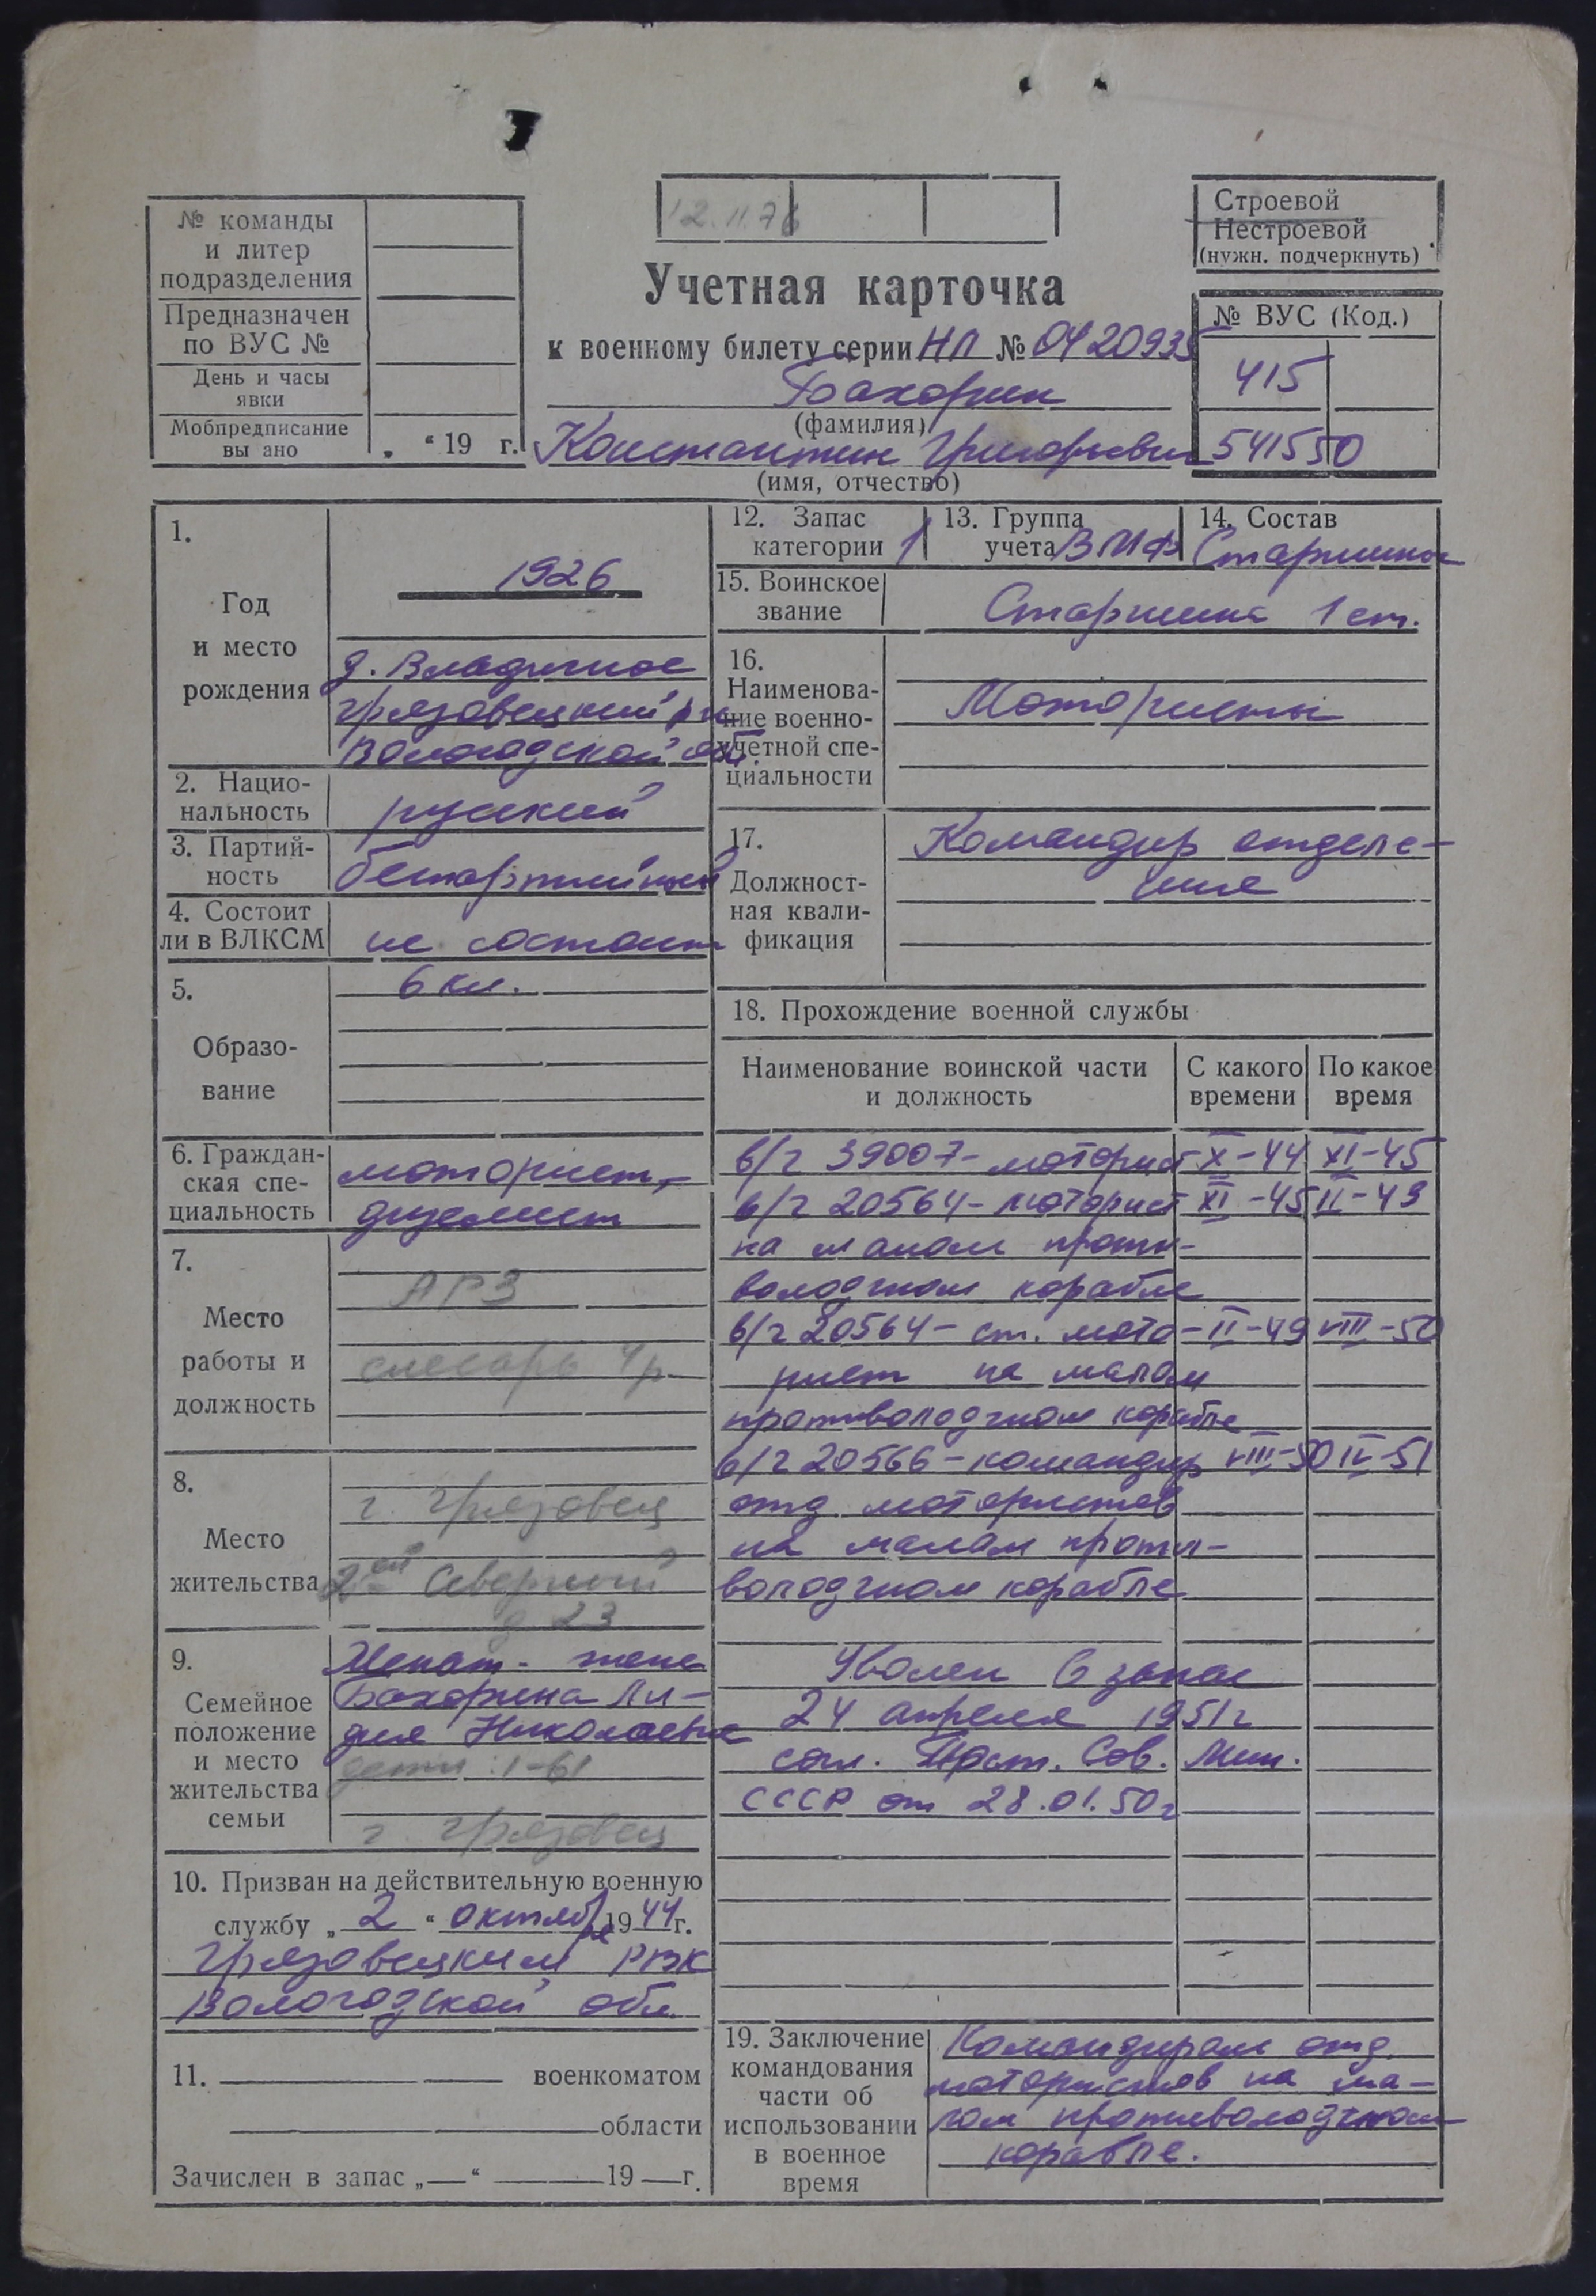 12.11.76
Строевой
Нестроевой
(нужн. подчеркнуть)
№ команды
и литер
подразделения
Предназначен
по ВУС №
День и часы
явки
Мобпредписание
вы ано
„ “ 19 г.
Учетная карточка
к военному билету серии НЛ № 0420935
Бахорин
(фамилия)
Константин Григорьевич
(имя, отчество)
№ ВУС (Код.)
415
541550
1.
Год
и место
рождения
1926
д. Владычное
Грязовецкий р-н
Вологодской обл.
2. Нацио-
нальность
русский
3. Партий-
ность
беспартийный
4. Состоит
ли в ВЛКСМ
не состоит
5.
Образо-
вание
6 кл.
6. Граждан-
ская спе-
циальность
моторист,
дизелист
7.
Место
работы и
должность
АРЗ
слесарь 4р
8.
Место
жительства
г. Грязовец
2ой Северный
д. 23
9.
Семейное
положение
и место
жительства
семьи
Женат - жена
Бахорина Ли-
дия Николаевна
дети: 1-61
г. Грязовец
10. Призван на действительную военную
службу „ 2 “ октября 1944 г.
Грязовецким РВК
Вологодской обл.
11. военкоматом
области
Зачислен в запас „—“ 19—г.
12. Запас
категории 1
13. Группа
учета ВМФ
14. Состав
Старшины
15. Воинское
звание
Старшина 1 ст.
16.
Наименова-
ние военно-
учетной спе-
циальности
Мотористы
17.
Должност-
ная квали-
фикация
Командир отделе-
ния
18. Прохождение военной службы
Наименование воинской части
и должность
С какого
времени
По какое
время
в/ч 39007 - моторист X-44 XI-45
в/ч 20564 - моторист XI-45 II-49
на малом проти-
володочном корабле
в/ч 20564 - ст. мото- II-49 VIII-50
рист на малом
противолодочном корабле
в/ч 20566 - командир VIII-50 IV-51
отд мотористов
на малом проти-
володочном корабле
Уволен в запас
24 апреля 1951 г
согл. Пост. Сов. Мин.
СССР от 28.01.50 г
19. Заключение
командования
части об
использовании
в военное
время
Командиром отд.
мотористов на ма-
лом противолодочном
корабле.